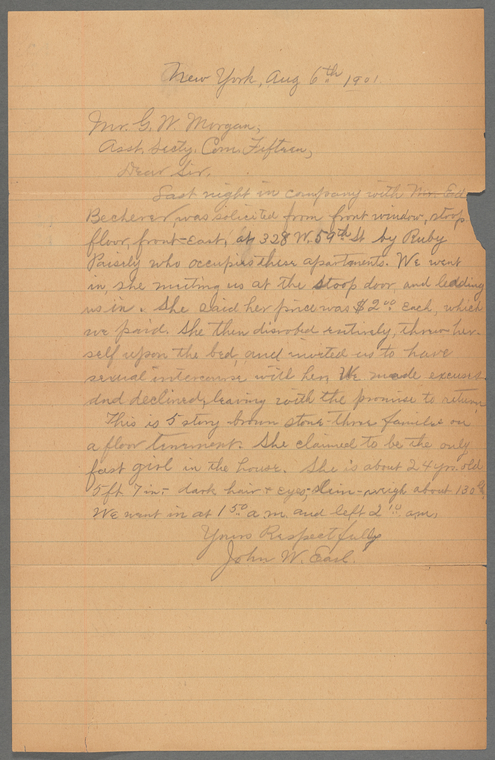 New York, Aug 6th 1901
Mr. G. W. Morgan,
Asst. Secty. Com. Fifteen,
Dear Sir.
Last night in company with Mr. Ed
Becherer, was solicited form front window, stoop
floor, front-East, at 328 W. 59th St by Ruby
Paisily who occupies these apartments. We went
in, she meeting us at the stoop door, and leading
us in. She said her price was $2.00 each, which
we paid. She then disrobed entirely, threw her-
self upon the bed, and invited us to have
sexual intercourse with her, We made excuses
and declined, leaving with the promise to return
This is 5 story brown stone three families on
a floor tenement. She claimed to be the only
fast girl in the house. She is about 24 yrs. old
5 ft 7 in,- dark hair & eyes, slim-weigh about 130
We went in at 1 50 a.m. and left 2 10 a.m.
Yours Respectfully
John W. Earl